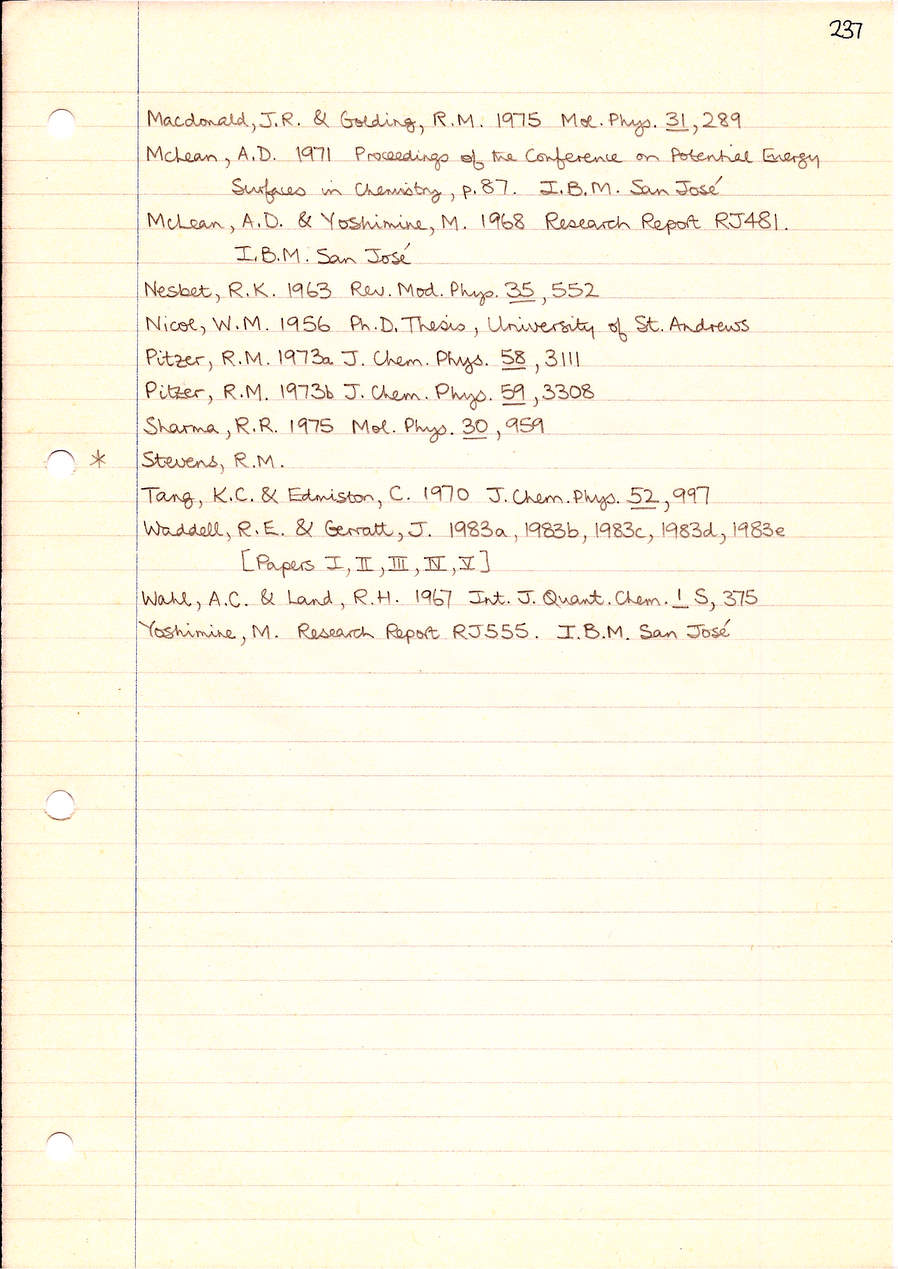 237
Macdonald, J.R. & Golding, R.M. 1975 Mol. Phys. 31, 289
McLean, A.D. 1971 Proceedings of the Conference on Potential Energy
Surfaces in Chemistry, p.87. I.B.M. San José
McLean, A.D. & Yoshimine, M. 1968 Research Report RJ481.
I.B.M. San José
Nesbet, R.K. 1963 Rev. Mod. Phys. 35, 552
Nicol, W.M. 1956 Ph.D. Thesis, University of St. Andrews
Pitzer, R.M. 1973a J. Chem. Phys. 58, 3111
Pitzer, R.M. 1973b J. Chem. Phys. 59, 3308
Sharma, R.R. 1975 Mol. Phys. 30, 959
* Stevens, R.M.
Tang, K.C. & Edmiston, C. 1970 J. Chem. Phys. 52, 997
Waddell, R.E. & Gerratt, J. 1983a, 1983b, 1983c, 1983d, 1983e
[Papers I, II, III, IV, V]
Wahl, A.C. & Land, R.H. 1967 Int. J. Quant. Chem. 1 S, 375
Yoshimine, M. Research Report RJ555. I.B.M. San José